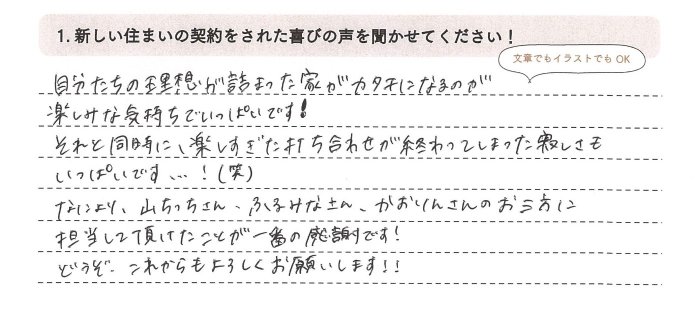 1. 新しい住まいの契約をされた喜びの声を聞かせてください！
文章でもイラストでも OK
自分たちの理想が詰まった家がカタチになるのが
楽しみな気持ちでいっぱいです!
それと同時に、楽しすぎた打ち合わせが終わってしまった寂しさも
いっぱいです、、、!(笑)
なにより、山ちっちさん、ふるみなさん、かおりんさんのお三方に
担当して頂けたことが一番の感謝です!
どうぞ、これからもよろしくお願いします!!